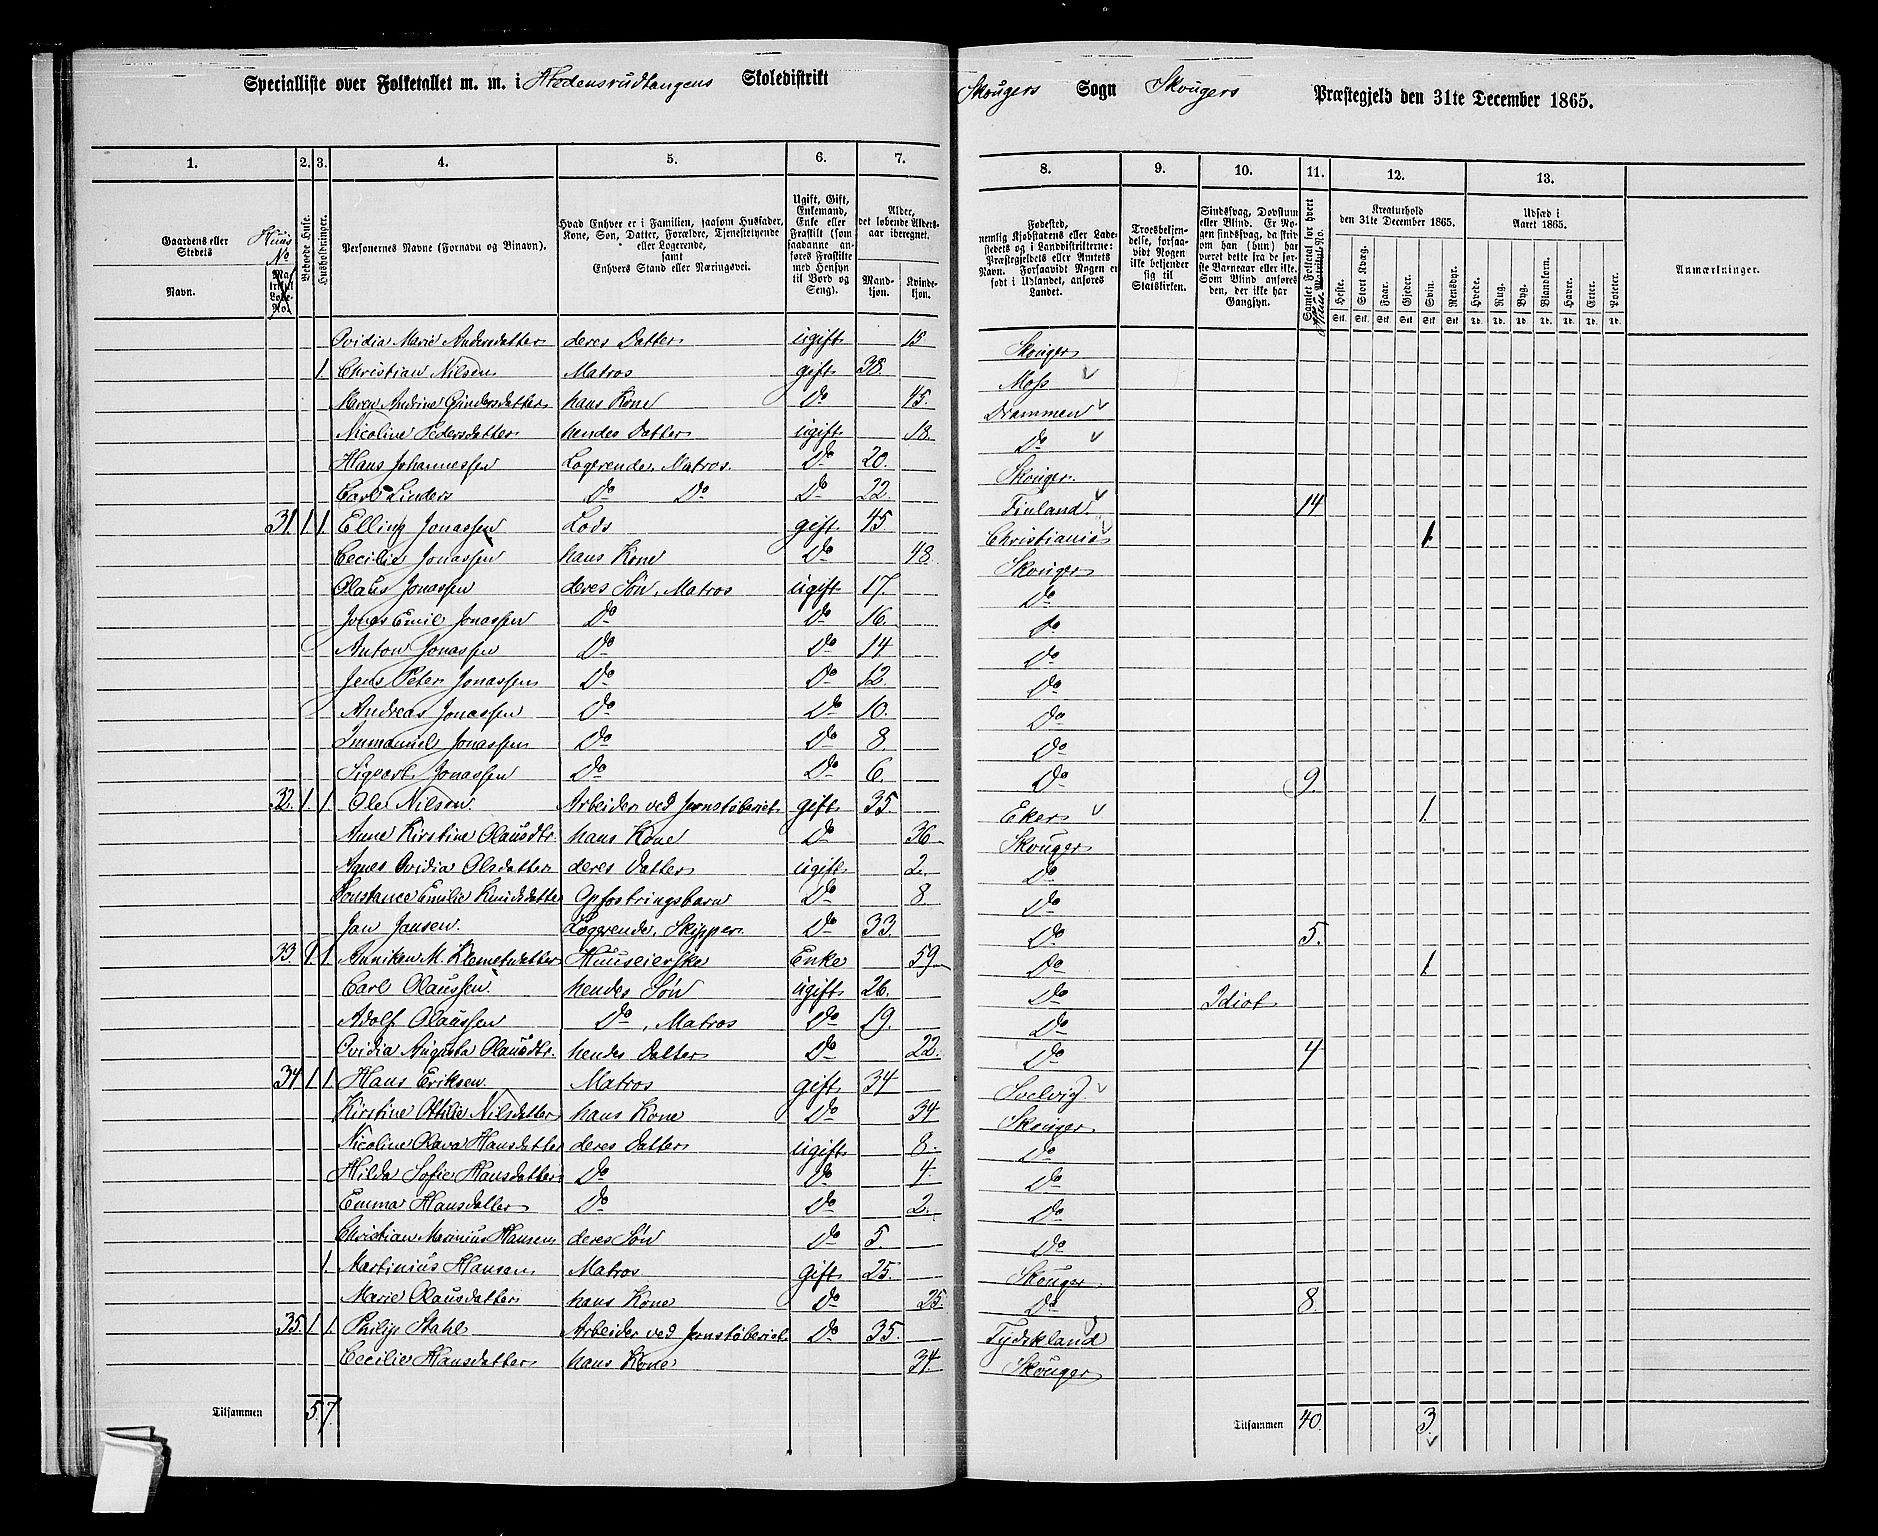 Specialliste over Folketallet m. m. i Stedensrudtangens Skoledistrikt Skougers Sogn Skougers Præstegjeld den 31te December 1865.
1. 2. 3. 4. 5. 6. 7. 8. 9. 10. 11. 12. 13.
Gaardens eller Stedets Navn.
Huus No
Matrikul Løbe-No.
Beboede Huse.
Husholdninger.
Personernes Navne (Fornavn og Binavn).
Hvad Enhver er i Familien, saasom Husfader, Kone, Søn, Datter, Forældre, Tjenestetyende eller Logerende, samt Enhvers Stand eller Næringsvei.
Ugift, Gift, Enkemand, Enke eller Fraskilt (som saadanne anføres Fraskilte med Hensyn til Bord og Seng).
Alder, det løbende Alders-aar iberegnet.
Mandkjøn. Kvindekjøn.
Fødested, nemlig Kjøbstadens eller Ladestedets og i Landdistrikterne: Præstegjeldets eller Amtets Navn. Forsaavidt Nogen er født i Udlandet, anføres Landet.
Troesbekjendelse, forsaavidt Nogen ikke bekjender sig til Statskirken.
Sindssvag, Døvstum eller Blind. Er Nogen sindssvag, da skrives om han (hun) har været dette fra sidste Barneaar eller ikke. Som Blind anføres den, der ikke har Gangsyn.
Samlet Folketal for hvert Huus No.
Kreaturhold den 31te December 1865.
Heste. Stort Kvæg. Faar. Gjeder. Svin. Rensdyr.
Udsæd i Aaret 1865.
Hvede. Rug. Byg. Blandkorn. Havre. Erter. Poteter.
Anmærkninger.
Ovidia Marie Andersdatter deres Datter ugift 15 Skouger
1. Christian Nilsen Matros gift 38. Moss
Maren Andrine Gundersdatter hans Kone Do 45. Drammen
Nicoline Pedersdatter hendes Datter ugift 18. Do
Hans Johannessen Logerende, Matros. Do 20. Skouger
Carl Linders Do Do Do 22. Finland 14
31. 1. 1. Elling Jonassen Lods gift 45 Christiania 1.
Cecilie Jonassen hans Kone Do 48. Skouger
Olaus Jonassen deres Søn, Matros ugift 17. Do
Jonas Emil Jonassen Do Do 16. Do
Anton Jonassen Do Do 14 Do
Jens Peter Jonassen Do Do 12. Do
Andreas Jonassen Do Do 10. Do
Immanuel Jonassen Do Do 8. Do
Sigvart Jonassen Do Do 6. Do 9.
32. 1. 1. Ole Nilsen Arbeider ved Jernstøberiet gift 35. Eker 1.
Anne Kirstine Olausdtr. hans Kone Do 36 Skouger
Agnes Ovidia Olsdatter deres Datter ugift 2. Do
Constance Emilie Knudsdatter Opfostringsbarn Do 8. Do
Jan Jansen. Logerende, Skipper Do 33. Do 5.
33. 1. 1. Anniken M. Klemetsdatter Huuseierske Enke 59. Do 1.
Carl Olaussen hendes Søn ugift 26. Do Idiot
Adolf Olaussen Do, Matros Do 19. Do
Ovidia Augusta Olausdtr. hendes Datter Do 22. Do 4
34 1. 1. Hans Eriksen Matros gift 34 Svelvig
Kirstine Ottilie Nilsdatter hans Kone Do 34 Skouger
Nicoline Olava Hansdatter deres Datter ugift 8. Do
Hilda Sofie Hansdatter Do Do 4. Do
Emma Hansdatter Do Do 2. Do
Christian Marinius Hansen deres Søn Do 5. Do
1. Martinius Hansen Matros gift 25. Skouger
Marie Olausdatter hans Kone Do 25. Do 8.
35. 1. 1. Philip Stahl Arbeider ved Jernstøberiet Do 35. Tydskland
Cecilie Hansdatter hans Kone 34. Skouger
Tilsammen 5 7. Tilsammen 40. 3.